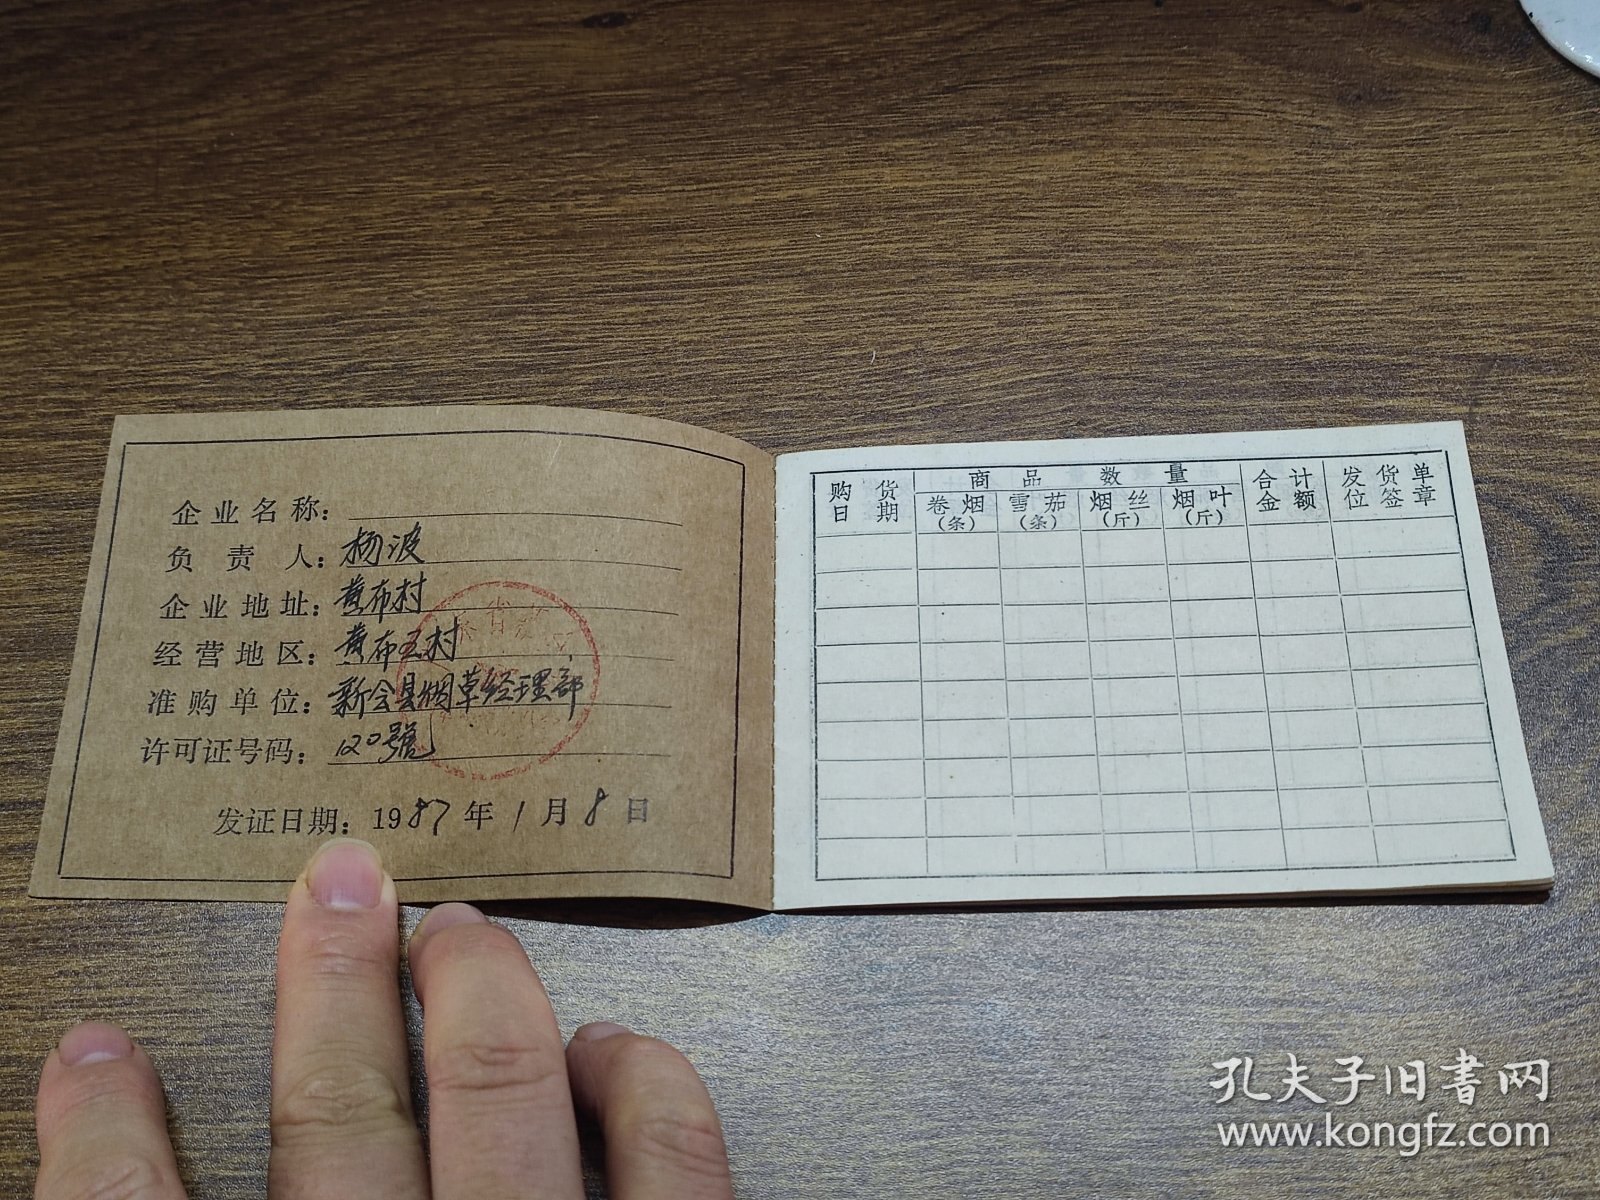 企业名称：
负责人：杨波
企业地址：黄布村
经营地区：黄布五村
准购单位：新会县烟草经理部
许可证号码：120號
发证日期：1987年1月8日
购货日期 商品数量 合计金额 发货单位签章
卷烟（条） 雪茄（条） 烟丝（斤） 烟叶（斤）
孔夫子旧書网
www.kongfz.com